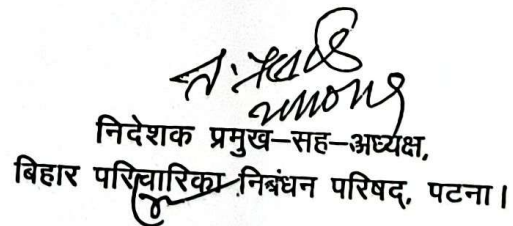 निदेशक प्रमुख–सह–अध्यक्ष,
बिहार परिचारिका निबंधन परिषद्, पटना।